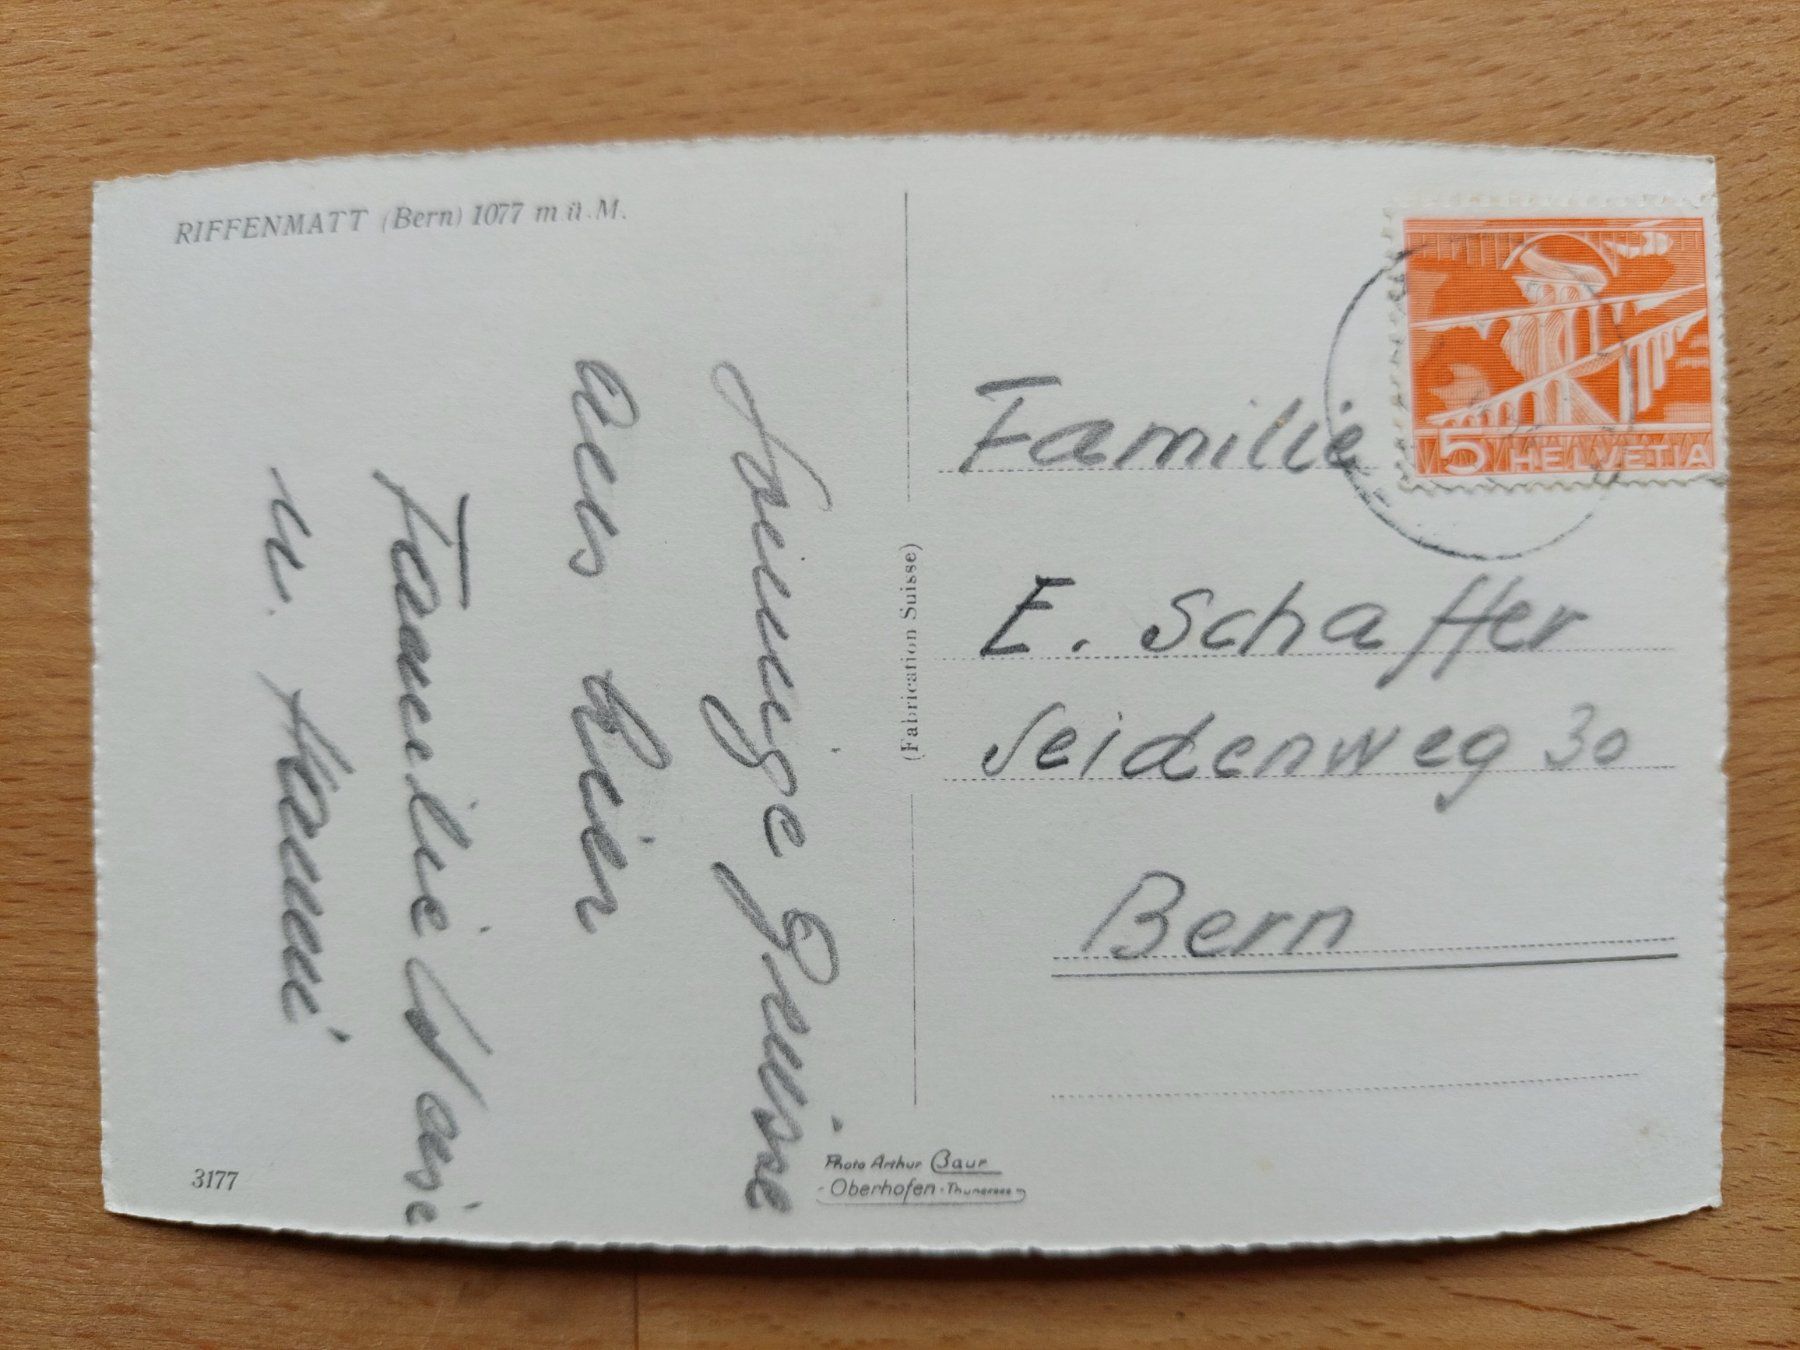 RIFFENMATT (Bern) 1077 m.ü.M.
Sonnige Grüsse
aus hier
Familie
u. Hanni
3177
(Fabrication Suisse)
Photo Arthur Baur
Oberhofen-Thunersee
5 HELVETIA
Familie
E. Schaffer
Seidenweg 30
Bern